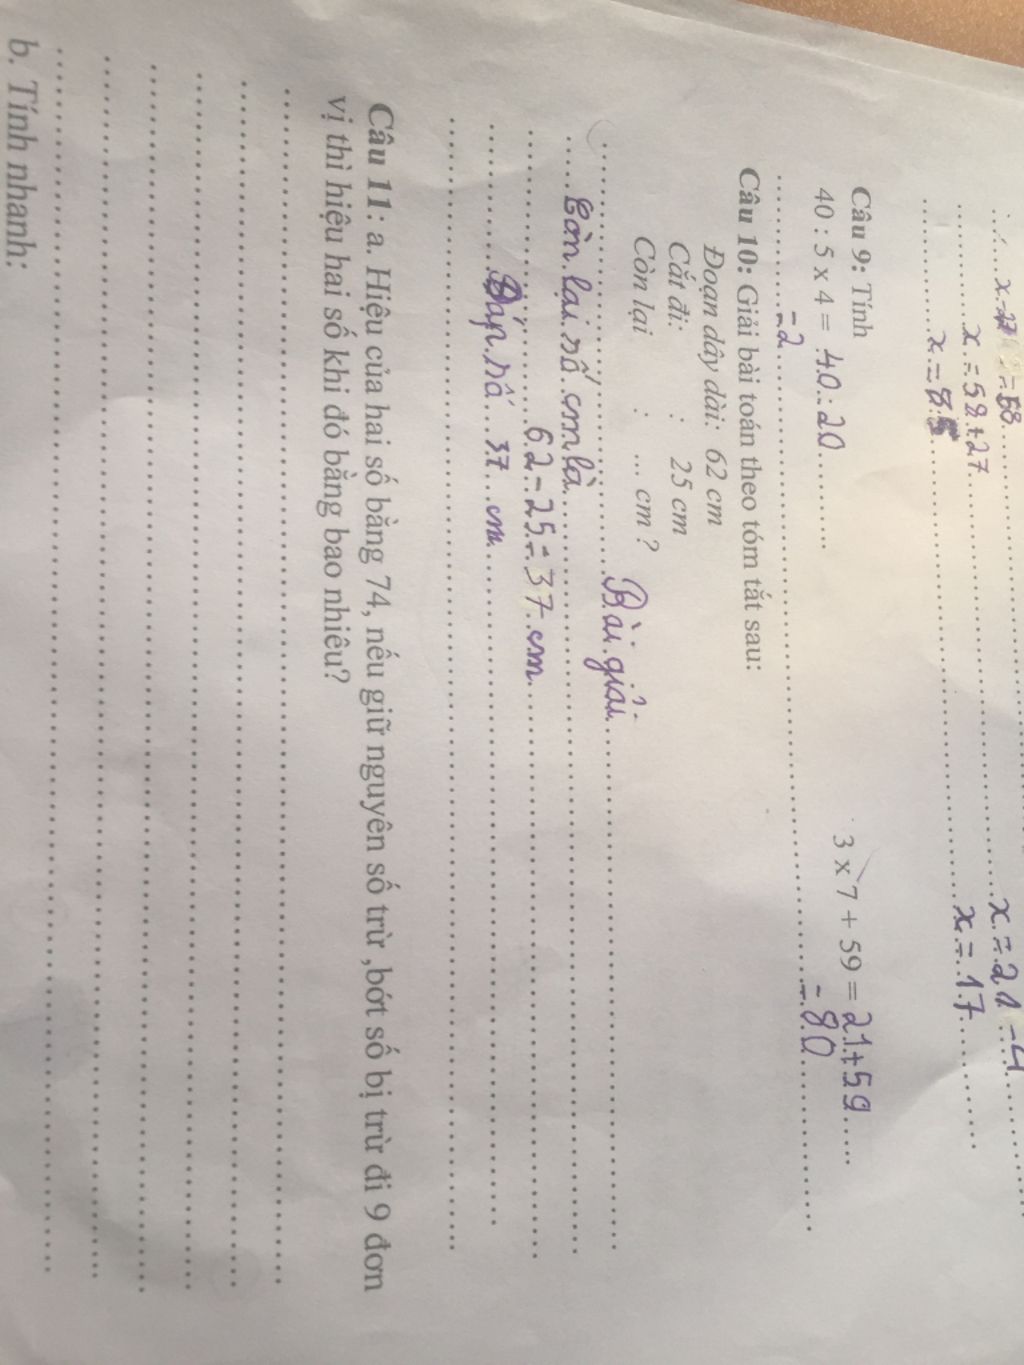 x - 27 = 58
x = 58 + 27
x = 85
x = 21 - 4
x = 17
Câu 9: Tính
40 : 5 x 4 = 40 : 20
= 2
3 x 7 + 59 = 21 + 59
= 80
Câu 10: Giải bài toán theo tóm tắt sau:
Đoạn dây dài: 62 cm
Cắt đi: : 25 cm
Còn lại : ... cm ?
Bài giải
Còn lại số cm là
62 - 25 = 37 cm
Đáp số 37 cm
Câu 11: a. Hiệu của hai số bằng 74, nếu giữ nguyên số trừ ,bớt số bị trừ đi 9 đơn
vị thì hiệu hai số khi đó bằng bao nhiêu?
b. Tính nhanh: